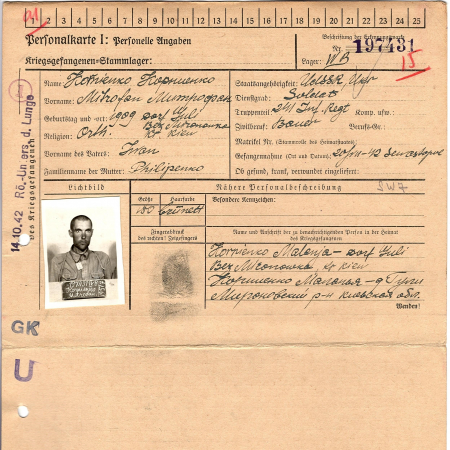 1 2 3 4 5 6 7 8 9 10 11 12 13 14 15 16 17 18 19 20 21 22 23 24 25
Personalkarte I: Personelle Angaben
Kriegsgefangenen-Stammlager:
Beschriftung der Erkennungsmarke
Nr. 197431
Lager: VB
15
Name: Kornienko Корниенко
Vorname: Mitrofan Митрофан
Geburtstag und -ort: 1909 Dorf Guli
Bez Mironowka
Kr Kiew
Religion: Orth.
Vorname des Vaters: Iwan
Familienname der Mutter: Philipenko
Staatsangehörigkeit: UdSSR
Dienstgrad: Soldat
Truppenteil: 241 Inf. Regt Komp. usw.
Zivilberuf: Bauer Berufs-Gr.:
Matrikel Nr. (Stammrolle des Heimatstaates)
Gefangennahme (Ort und Datum): Sewastopol
Ob gesund, krank, verwundet eingeliefert:
14.10.42 Rö.-Unters. d. Lunge
des Kriegsgefangenen
Lichtbild
Nähere Personalbeschreibung
SW7
Größe
Haarfarbe
Besondere Kennzeichen:
brünett
Fingerabdruck
des rechten! Zeigefingers
Name und Anschrift der zu benachrichtigenden Person in der Heimat
des Kriegsgefangenen
Dorf Guli
Bez Mironowka Kr Kiew
Корниенко Маланья д Гули
Мироновский р-н киевской обл.
Wenden!
GK
U